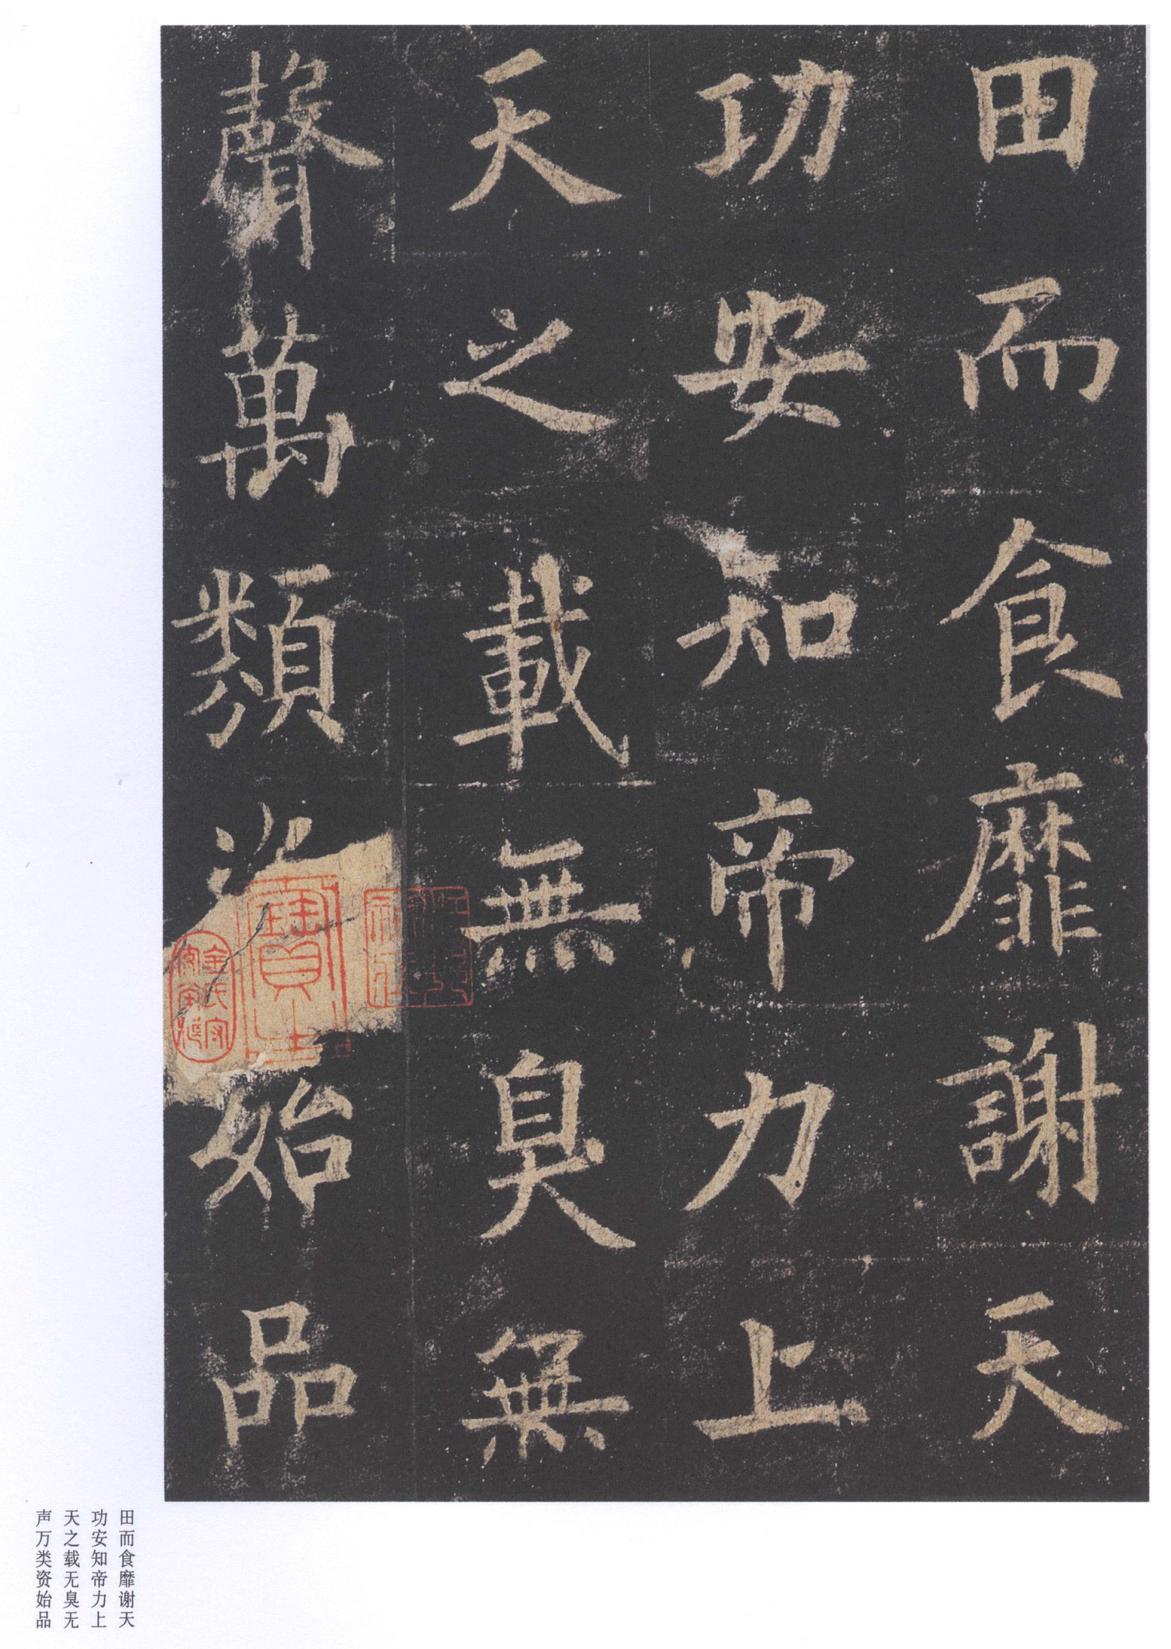 田而食靡謝天
功安知帝力上
天之載無臭無
聲萬類資始品
田而食靡谢天
功安知帝力上
天之载无臭无
声万类资始品